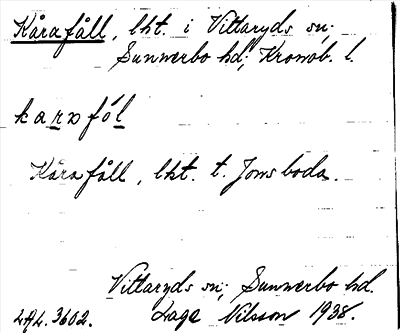 Kårafåll, lht. i Vittaryds sn;
Sunnerbo hd; Kronob. l.
karafól
Kårafåll, lht. t. Jonsboda.
Vittaryds sn; Sunnerbo hd.
LAL. 3602. Lage Nilsson 1938.